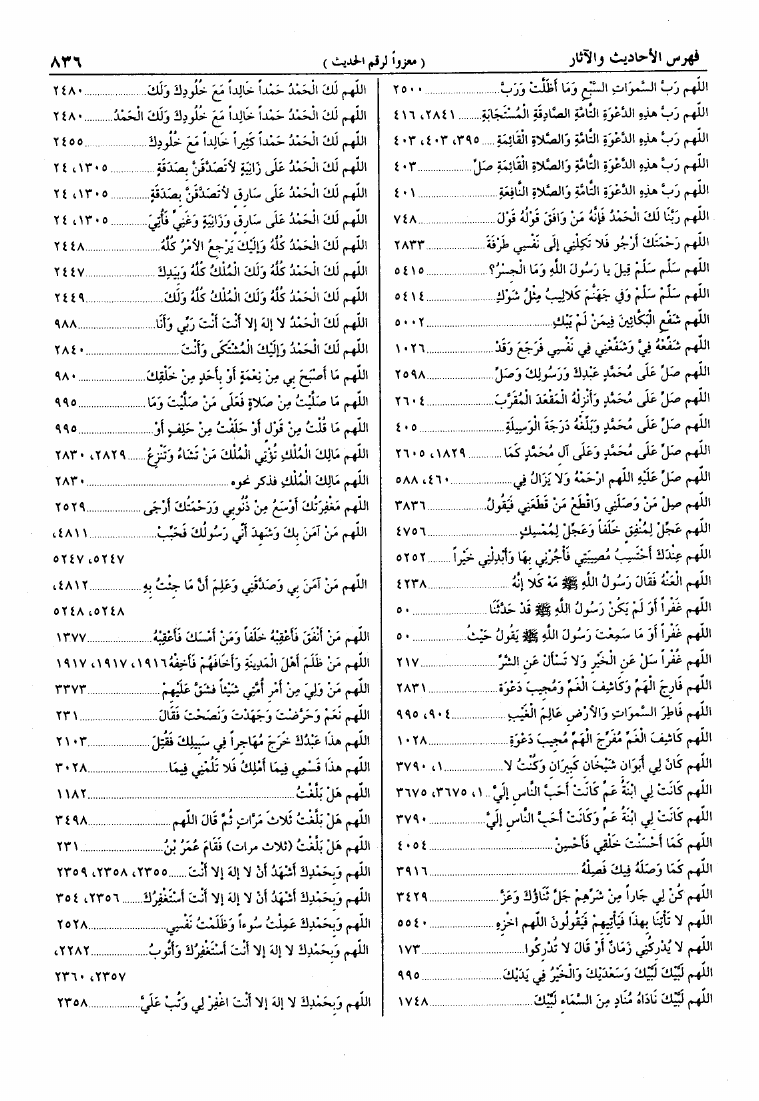 فهرس الأحاديث والآثار
( معزواً لرقم الحديث )
٨٣٦
اللهم رَبَّ السَّموَاتِ السَّبْعِ وَمَا أَظَلَّتْ وَرَبَّ ... ٢٥٠٠
اللهم رَبَّ هذِهِ الدَّعْوَةِ التَّامَّةِ الصَّادِقَةِ الْمُسْتَجَابَةِ ... ٢٨٤١، ٤١٦
اللهم رَبَّ هذِهِ الدَّعْوَةِ التَّامَّةِ وَالصَّلاَةِ الْقَائِمَةِ ... ٣٩٥، ٤٠٣، ٤٠٣
اللهم رَبَّ هذِهِ الدَّعْوَةِ التَّامَّةِ وَالصَّلاَةِ الْقَائِمَةِ صَلِّ ... ٤٠٣
اللهم رَبَّ هذِهِ الدَّعْوَةِ التَّامَّةِ وَالصَّلاَةِ النَّافِعَةِ ... ٤٠١
اللهم رَبَّنَا لَكَ الْحَمْدُ فَإِنَّهُ مَنْ وَافَقَ قَوْلُهُ قَوْلَ ... ٧٤٨
اللهم رَحْمَتَكَ أَرْجُو فَلاَ تَكِلْنِي إِلَى نَفْسِي طَرْفَةَ ... ٢٨٣٣
اللهم سَلِّمْ سَلِّمْ قِيلَ يا رَسُولَ اللهِ وَمَا الْجِسْرُ؟ ... ٥٤١٥
اللهم سَلِّمْ سَلِّمْ وَفِي جَهَنَّمَ كَلاَلِيبُ مِثْلُ شَوْكِ ... ٥٤١٤
اللهم شَفِّعِ الْبَكَّائِينَ فِيمَنْ لَمْ يَبْكِ ... ٥٠٠٢
اللهم شَفِّعْهُ فِيَّ وَشَفِّعْنِي فِي نَفْسِي فَرَجَعَ وَقَدْ ... ١٠٢٦
اللهم صَلِّ عَلَى مُحَمَّدٍ عَبْدِكَ وَرَسُولِكَ وَصَلِّ ... ٢٥٩٨
اللهم صَلِّ عَلَى مُحَمَّدٍ وَأَنْزِلْهُ الْمَقْعَدَ الْمُقَرَّبَ ... ٢٦٠٤
اللهم صَلِّ عَلَى مُحَمَّدٍ وَبَلِّغْهُ دَرَجَةَ الْوَسِيلَةِ ... ٤٠٥
اللهم صَلِّ عَلَى مُحَمَّدٍ وَعَلَى آلِ مُحَمَّدٍ كَمَا ... ١٨٢٩، ٢٦٠٥
اللهم صَلِّ عَلَيْهِ اللهم ارْحَمْهُ وَلاَ يَزَالُ فِي ... ٤٦٠، ٥٨٨
اللهم صِلْ مَنْ وَصَلَنِي وَاقْطَعْ مَنْ قَطَعَنِي فَيَقُولُ ... ٣٨٣٦
اللهم عَجِّلْ لِمُنْفِقٍ خَلَفاً وَعَجِّلْ لِمُمْسِكٍ ... ٤٧٥٦
اللهم عِنْدَكَ أَحْتَسِبُ مُصِيبَتِي فَأْجُرْنِي بِهَا وَأَبْدِلْنِي خَيْراً ... ٥٢٥٢
اللهم الْعَنْهُ فَقَالَ رَسُولُ اللهِ ﷺ مَهْ كَلاَّ إِنَّهُ ... ٤٢٣٨
اللهم غَفْراً أَوَ لَمْ يَكُنْ رَسُولُ اللهِ ﷺ قَدْ حَدَّثَنَا ... ٥٠
اللهم غَفْراً أَوَ مَا سَمِعْتَ رَسُولَ اللهِ ﷺ يَقُولُ حَيْثُ ... ٥٠
اللهم غَفْراً سَلْ عَنِ الْخَيْرِ وَلاَ تَسْأَلْ عَنِ الشَّرِّ ... ٢١٧
اللهم فَارِجَ الْهَمِّ وَكَاشِفَ الْغَمِّ وَمُجِيبَ دَعْوَةِ ... ٢٨٣١
اللهم فَاطِرَ السَّموَاتِ وَالأَرْضِ عَالِمَ الْغَيْبِ ... ٩٠٤، ٩٩٥
اللهم كَاشِفَ الْغَمِّ مُفَرِّجَ الْهَمِّ مُجِيبَ دَعْوَةِ ... ١٠٢٨
اللهم كَانَ لِي أَبَوَانِ شَيْخَانِ كَبِيرَانِ وَكُنْتُ لاَ ... ١، ٣٧٩٠
اللهم كَانَتْ لِي ابْنَةُ عَمٍّ كَانَتْ أَحَبَّ النَّاسِ إِلَيَّ ... ١، ٣٦٧٥، ٣٦٧٥
اللهم كَانَتْ لِي ابْنَةُ عَمٍّ وَكَانَتْ أَحَبَّ النَّاسِ إِلَيَّ ... ٣٧٩٠
اللهم كَمَا أَحْسَنْتَ خَلْقِي فَأَحْسِنْ ... ٤٠٥٤
اللهم كَمَا وَصَلَهُ فِيكَ فَصِلْهُ ... ٣٩١٦
اللهم كُنْ لِي جَاراً مِنْ شَرِّهِمْ جَلَّ ثَنَاؤُكَ وَعَزَّ ... ٣٤٢٩
اللهم لاَ تَأْتِنَا بِهذَا فَيَأْتِيهِمْ فَيَقُولُونَ اللهم اخْزِهِ ... ٥٥٤٠
اللهم لاَ يُدْرِكُنِي زَمَانٌ أَوْ قَالَ لاَ تُدْرِكُوا ... ١٧٣
اللهم لَبَّيْكَ لَبَّيْكَ وَسَعْدَيْكَ وَالْخَيْرُ فِي يَدَيْكَ ... ٩٩٥
اللهم لَبَّيْكَ نَادَاهُ مُنَادٍ مِنَ السَّمَاءِ لَبَّيْكَ ... ١٧٤٨
اللهم لَكَ الْحَمْدُ حَمْداً خَالِداً مَعَ خُلُودِكَ وَلَكَ ... ٢٤٨٠
اللهم لَكَ الْحَمْدُ حَمْداً خَالِداً مَعَ خُلُودِكَ وَلَكَ الْحَمْدُ ... ٢٤٨٠
اللهم لَكَ الْحَمْدُ حَمْداً كَثِيراً خَالِداً مَعَ خُلُودِكَ ... ٢٤٥٥
اللهم لَكَ الْحَمْدُ عَلَى زَانِيَةٍ لأَتَصَدَّقَنَّ بِصَدَقَةٍ ... ١٣٠٥، ٢٤
اللهم لَكَ الْحَمْدُ عَلَى سَارِقٍ لأَتَصَدَّقَنَّ بِصَدَقَةٍ ... ١٣٠٥، ٢٤
اللهم لَكَ الْحَمْدُ عَلَى سَارِقٍ وَزَانِيَةٍ وَغَنِيٍّ فَأُتِيَ ... ١٣٠٥، ٢٤
اللهم لَكَ الْحَمْدُ كُلُّهُ وَإِلَيْكَ يَرْجِعُ الأَمْرُ كُلُّهُ ... ٢٤٤٨
اللهم لَكَ الْحَمْدُ كُلُّهُ وَلَكَ الْمُلْكُ كُلُّهُ وَبِيَدِكَ ... ٢٤٤٧
اللهم لَكَ الْحَمْدُ كُلُّهُ وَلَكَ الْمُلْكُ كُلُّهُ وَلَكَ ... ٢٤٤٩
اللهم لَكَ الْحَمْدُ لاَ إِلهَ إِلاَّ أَنْتَ أَنْتَ رَبِّي وَأَنَا ... ٩٨٨
اللهم لَكَ الْحَمْدُ وَإِلَيْكَ الْمُشْتَكَى وَأَنْتَ ... ٢٨٤٠
اللهم مَا أَصْبَحَ بِي مِنْ نِعْمَةٍ أَوْ بِأَحَدٍ مِنْ خَلْقِكَ ... ٩٨٠
اللهم مَا صَلَّيْتُ مِنْ صَلاَةٍ فَعَلَى مَنْ صَلَّيْتَ وَمَا ... ٩٩٥
اللهم مَا قُلْتُ مِنْ قَوْلٍ أَوْ حَلَفْتُ مِنْ حَلِفٍ أَوْ ... ٩٩٥
اللهم مَالِكَ الْمُلْكِ تُؤْتِي الْمُلْكَ مَنْ تَشَاءُ وَتَنْزِعُ ... ٢٨٢٩، ٢٨٣٠
اللهم مَالِكَ الْمُلْكِ فذكر نحوه ... ٢٨٣٠
اللهم مَغْفِرَتُكَ أَوْسَعُ مِنْ ذُنُوبِي وَرَحْمَتُكَ أَرْجَى ... ٢٥٢٩
اللهم مَنْ آمَنَ بِكَ وَشَهِدَ أَنِّي رَسُولُكَ فَحَبِّبْ ... ٤٨١١،
٥٢٤٧، ٥٢٤٧
اللهم مَنْ آمَنَ بِي وَصَدَّقَنِي وَعَلِمَ أَنَّ مَا جِئْتُ بِهِ ... ٤٨١٢،
٥٢٤٨، ٥٢٤٨
اللهم مَنْ أَنْفَقَ فَأَعْقِبْهُ خَلَفاً وَمَنْ أَمْسَكَ فَأَعْقِبْهُ ... ١٣٧٧
اللهم مَنْ ظَلَمَ أَهْلَ الْمَدِينَةِ وَأَخَافَهُمْ فَأَخِفْهُ ١٩١٦، ١٩١٧، ١٩١٧
اللهم مَنْ وَلِيَ مِنْ أَمْرِ أُمَّتِي شَيْئاً فَشَقَّ عَلَيْهِمْ ... ٣٣٧٣
اللهم نَعَمْ وَحَرَّضْتَ وَجَهَدْتَ وَنَصَحْتَ فَقَالَ ... ٢٣١
اللهم هذَا عَبْدُكَ خَرَجَ مُهَاجِراً فِي سَبِيلِكَ فَقُتِلَ ... ٢١٠٣
اللهم هذَا قَسْمِي فِيمَا أَمْلِكُ فَلاَ تَلُمْنِي فِيمَا ... ٣٠٢٨
اللهم هَلْ بَلَّغْتُ ... ١١٨٢
اللهم هَلْ بَلَّغْتُ ثَلاَثَ مَرَّاتٍ ثُمَّ قَالَ اللهم ... ٣٤٩٨
اللهم هَلْ بَلَّغْتُ (ثلاث مرات) فَقَامَ عُمَرُ بْنُ ... ٢٣١
اللهم وَبِحَمْدِكَ أَشْهَدُ أَنْ لاَ إِلهَ إِلاَّ أَنْتَ ... ٢٣٥٥، ٢٣٥٨، ٢٣٥٩
اللهم وَبِحَمْدِكَ أَشْهَدُ أَنْ لاَ إِلهَ إِلاَّ أَنْتَ أَسْتَغْفِرُكَ ... ٢٣٥٦، ٣٥٤
اللهم وَبِحَمْدِكَ عَمِلْتُ سُوءاً وَظَلَمْتُ نَفْسِي ... ٢٥٢٨
اللهم وَبِحَمْدِكَ لاَ إِلهَ إِلاَّ أَنْتَ أَسْتَغْفِرُكَ وَأَتُوبُ ... ٢٢٨٢،
٢٣٥٧، ٢٣٦٠
اللهم وَبِحَمْدِكَ لاَ إِلهَ إِلاَّ أَنْتَ اغْفِرْ لِي وَتُبْ عَلَيَّ ... ٢٣٥٨